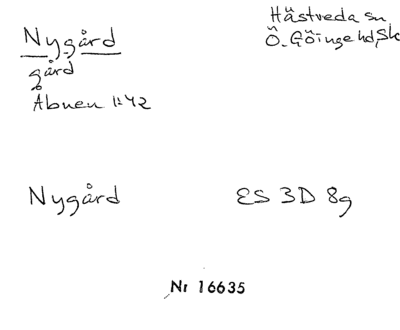 Nygård
gård
Åbuen 1:42
Hästveda sn
Ö. Göinge hd, Sk
Nygård
ES 3D 8g
Nr 16635